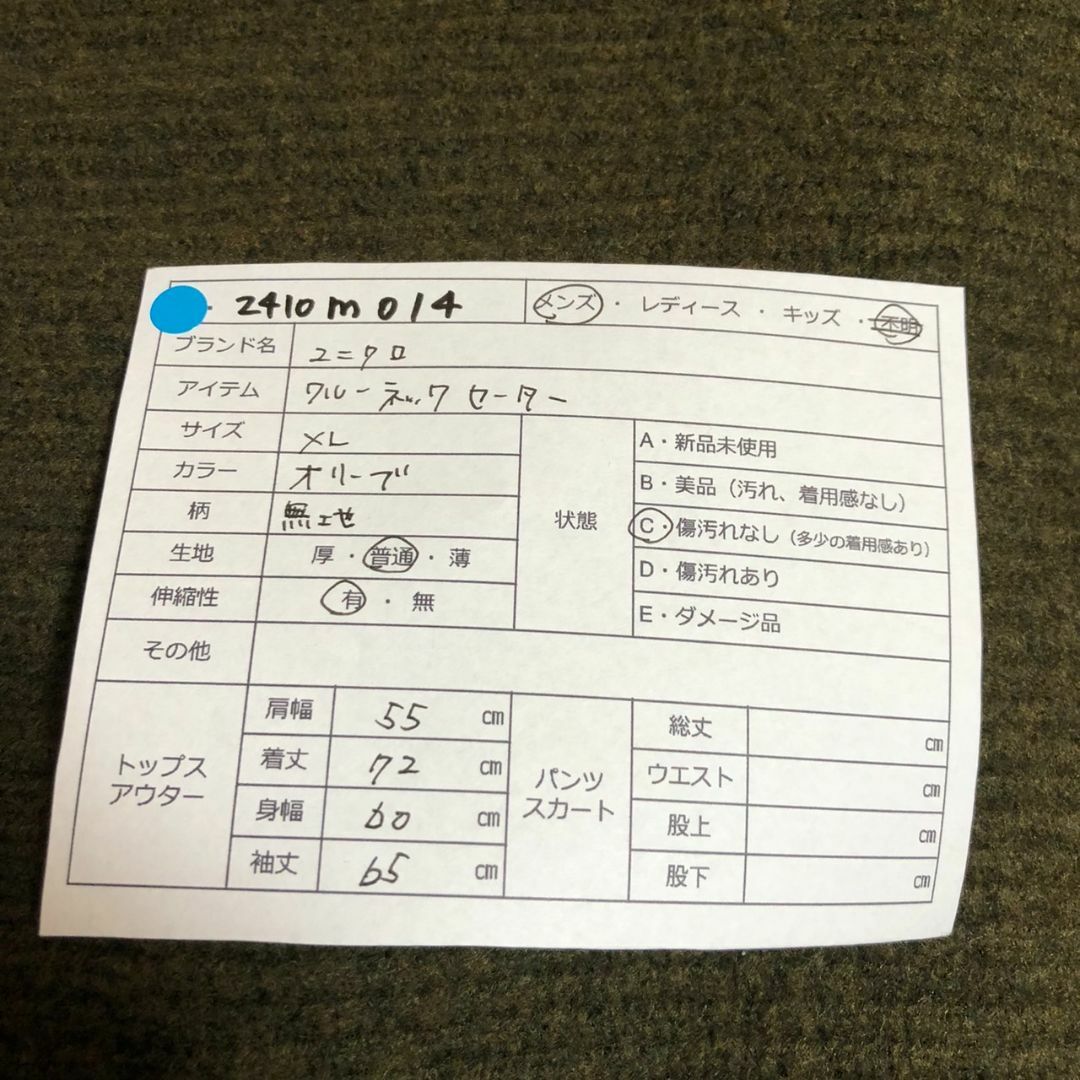 2410 m 014 メンズ ・ レディース ・ キッズ ・ 不明
ブランド名 ユニクロ
アイテム クルーネックセーター
サイズ XL
カラー オリーブ
柄 無地
生地 厚 ・ 普通 ・ 薄
伸縮性 有 ・ 無
状態
A・新品未使用
B・美品（汚れ、着用感なし）
C・傷汚れなし（多少の着用感あり）
D・傷汚れあり
E・ダメージ品
その他
トップス
アウター
肩幅 55 cm
着丈 72 cm
身幅 60 cm
袖丈 65 cm
パンツ
スカート
総丈 cm
ウエスト cm
股上 cm
股下 cm